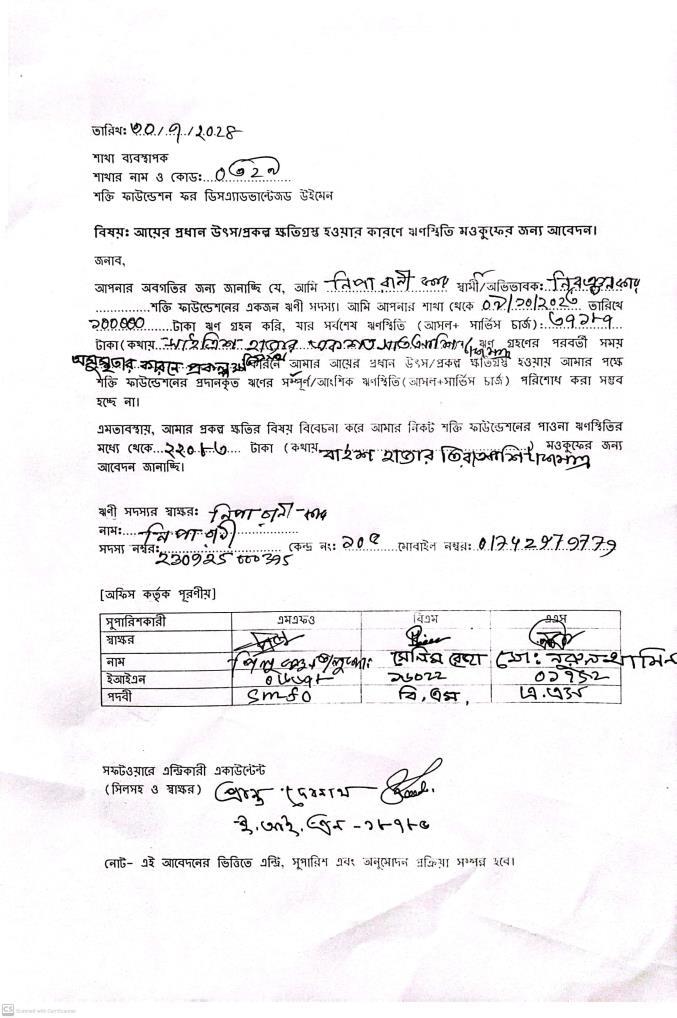 তারিখ: ৩০/৭/২০২৪
শাখা ব্যবস্থাপক
শাখার নাম ও কোড:
শক্তি ফাউন্ডেশন ফর ডিসএ্যাডভান্টেজড উইমেন
বিষয়: আয়ের প্রধান উৎস/প্রকল্প ক্ষতিগ্রস্ত হওয়ার কারণে ঋণস্থিতি মওকুফের জন্য আবেদন।
জনাব,
আপনার অবগতির জন্য জানাচ্ছি যে, আমি নিপা রানী স্বামী/অভিভাবক:
শক্তি ফাউন্ডেশনের একজন ঋণী সদস্য। আমি আপনার শাখা থেকে ০৭/১০/২০২৩ তারিখে
১০০০০০ টাকা ঋণ গ্রহন করি, যার সর্বশেষ ঋণস্থিতি (আসল+ সার্ভিস চার্জ): ৩৭১৮৭
টাকা(কথায় সাইত্রিশ হাজার একশত সাতআশি টাকা মাত্র) ঋণ গ্রহণের পরবর্তী সময়
অসুস্থতার কারনে প্রকল্প কারণে আমার আয়ের প্রধান উৎস/প্রকল্প ক্ষতিগ্রস্ত হওয়ায় আমার পক্ষে
শক্তি ফাউন্ডেশনের প্রদানকৃত ঋণের সম্পূর্ণ/আংশিক ঋণস্থিতি(আসল+সার্ভিস চার্জ) পরিশোধ করা সম্ভব
হচ্ছে না।
এমতাবস্থায়, আমার প্রকল্প ক্ষতির বিষয় বিবেচনা করে আমার নিকট শক্তি ফাউন্ডেশনের পাওনা ঋণস্থিতির
মধ্যে থেকে ২২০৮৩ টাকা (কথায় বাইশ হাজার তিরাআশি টাকা মাত্র) মওকুফের জন্য
আবেদন জানাচ্ছি।
ঋণী সদস্যর স্বাক্ষর: নিপা রানী
নাম: নিপা রানী
সদস্য নম্বর: কেন্দ্র নং: ১০৫ মোবাইল নম্বর: 01742979779
230925000395
[অফিস কর্তৃক পূরণীয়]
সুপারিশকারী এমএফও বিএম এএস
স্বাক্ষর
নাম সেলিম রেজা মো: নুরুল আমিন
ইআইএন ১৬০২২ ০১৭৫২
পদবী SMFO বি,এম, এ.এস
সফটওয়ারে এন্ট্রিকারী একাউন্টেন্ট
(সিলসহ ও স্বাক্ষর) দেবনাথ
ই.আই.এন -১৮৭৮৫
নোট- এই আবেদনের ভিত্তিতে এন্ট্রি, সুপারিশ এবং অনুমোদন প্রক্রিয়া সম্পন্ন হবে।
CS Scanned with CamScanner